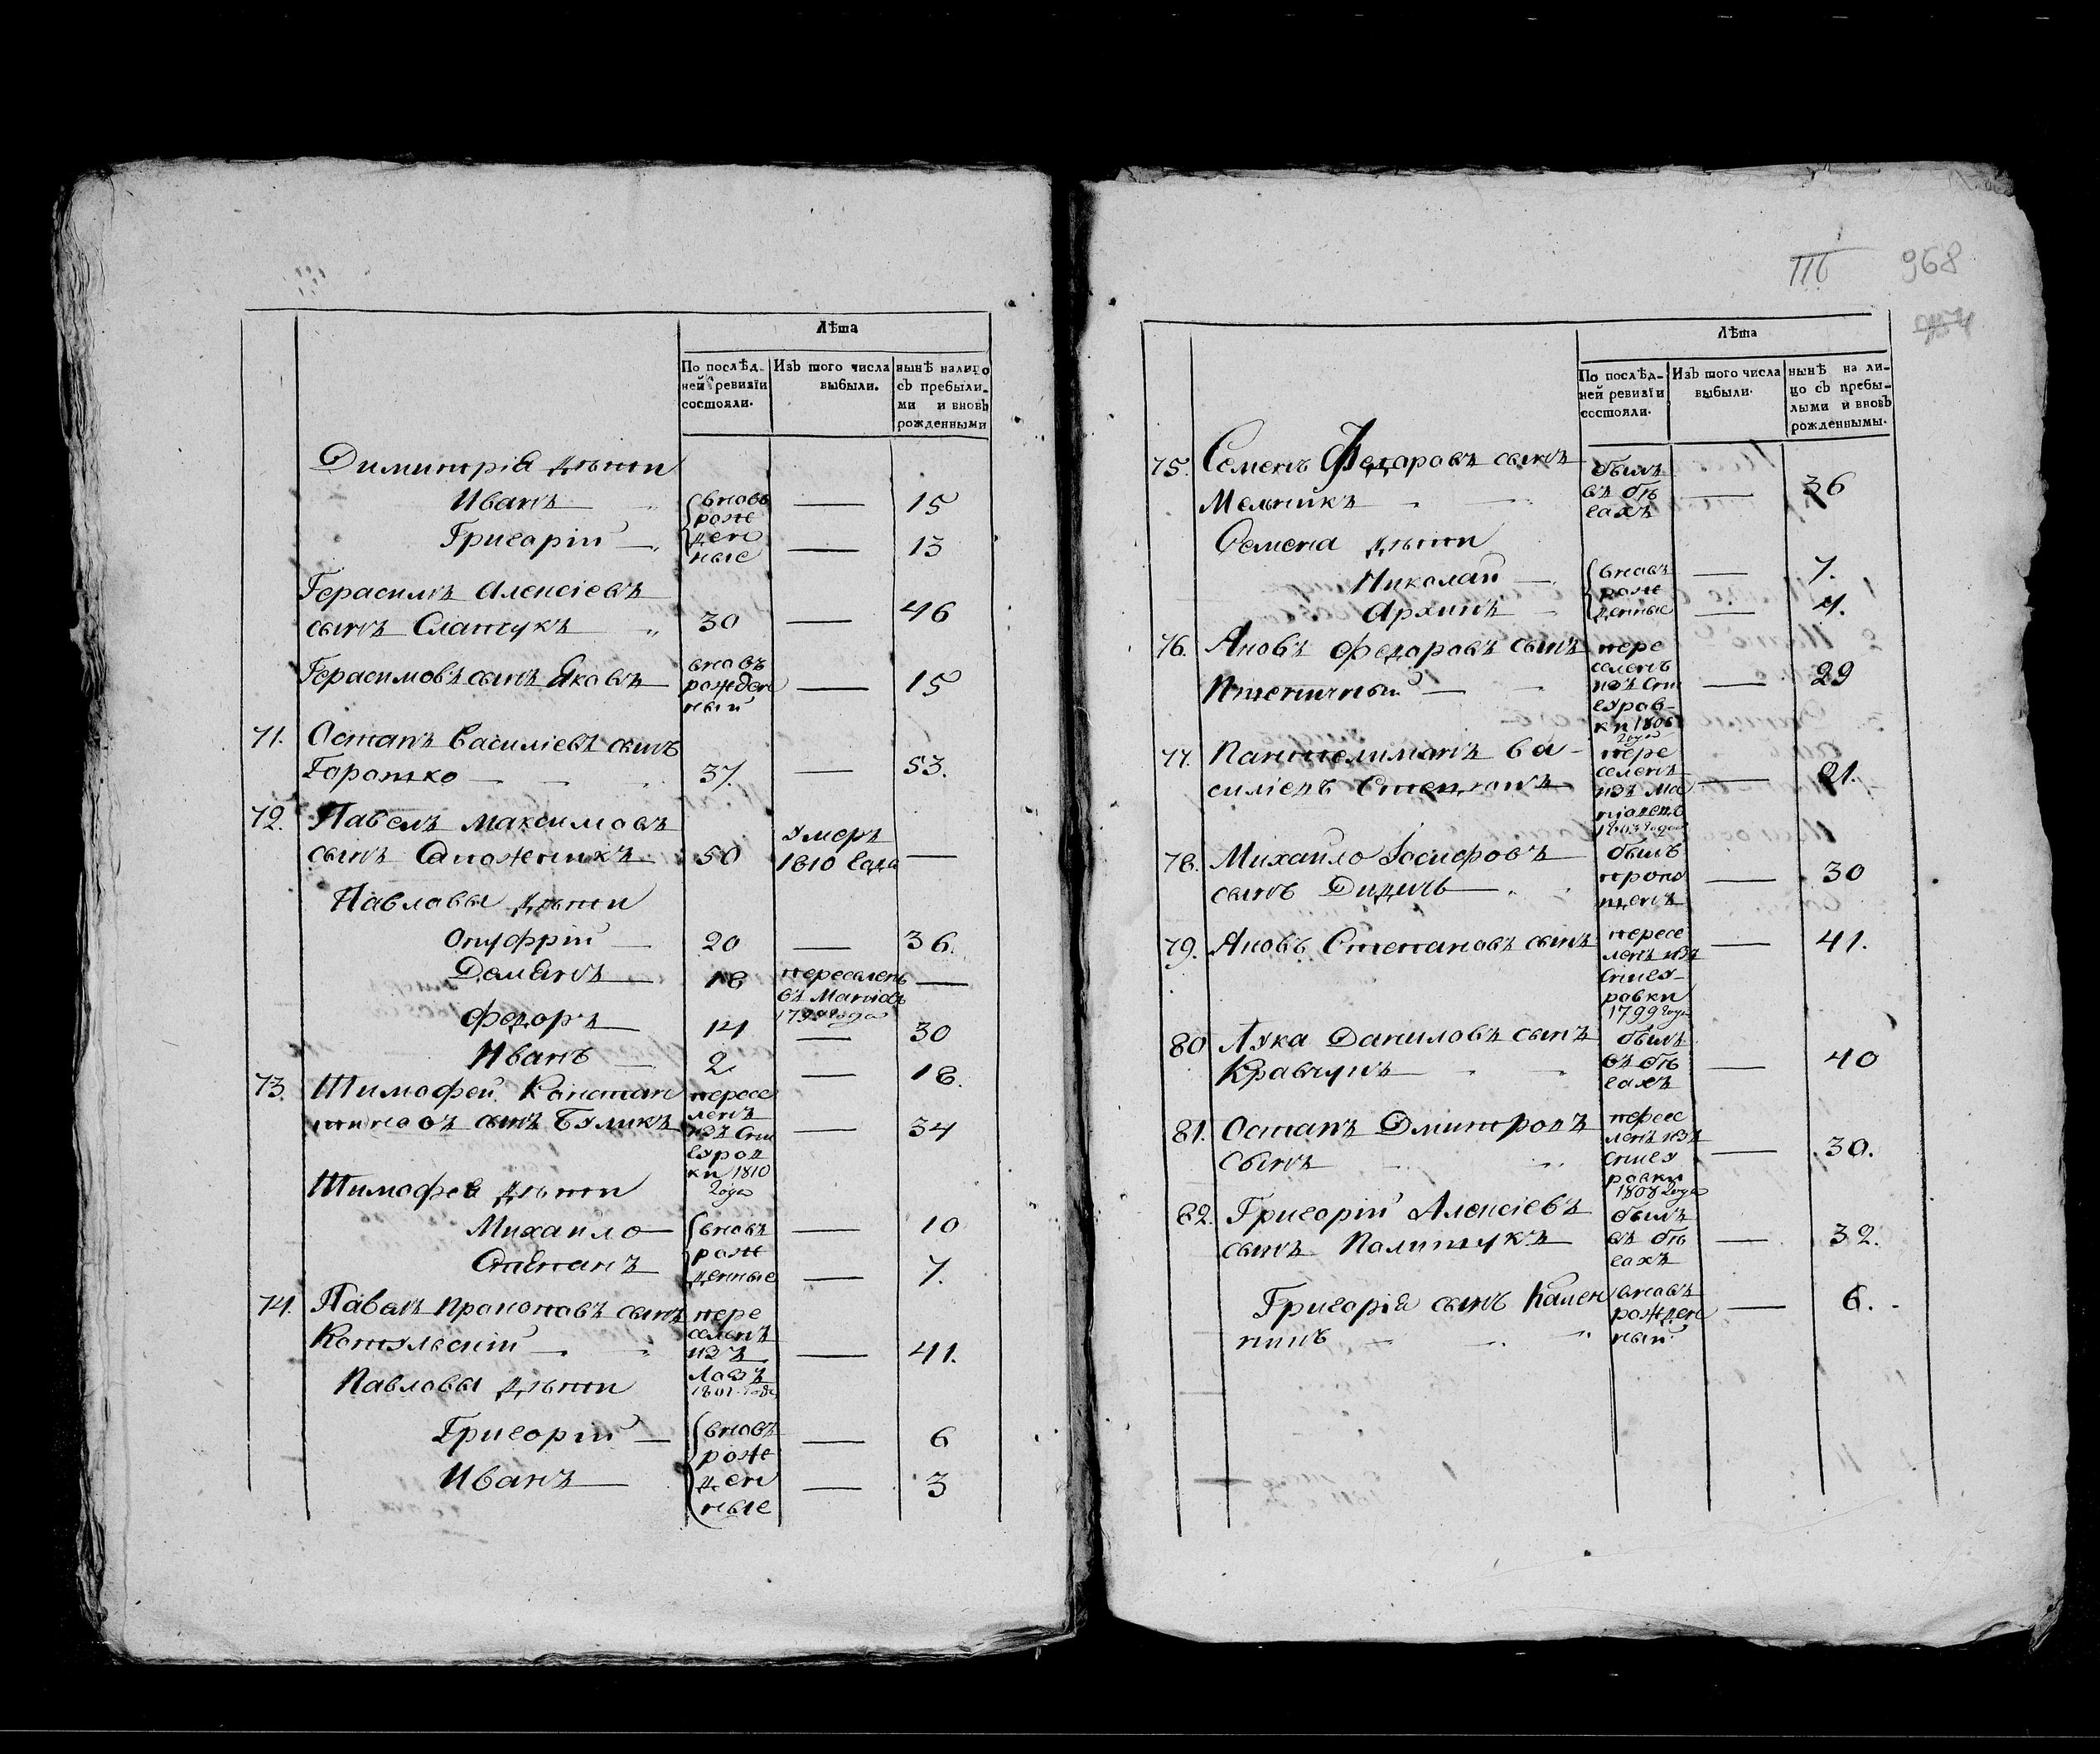 Лѣта
По послѣд-
ней ревизіи
состояли.
Изъ того числа
выбыли.
нынѣ налицо
съ пребыли-
ми и вновь
рожденными
Димитрія дѣти
Иванъ — вновь — 15
рож
Григорій — ден — 13
ные
Герасимъ Алексіевъ
сынъ 30 — 46
Герасимовъ сынъ Яковъ вновь рожден ный — 15
71. Остапъ Василіевъ сынъ
Горошко — 37. — 53.
72. Павелъ Максимовъ
сынъ Сапожникъ 50 умеръ 1810 года —
Павловы дѣти
Онуфрій — 20 — 36.
Демянъ 18 переселенъ —
Федоръ 14 — 30
Иванъ — 2 — 18.
73. Тимофей Констан
тиновъ сынъ Буликъ — 34
пересе
ленъ
изъ Сни
ки 1810
года
Тимофея дѣти
Михаило — вновь — 10
рож
Степанъ денные — 7.
74. Павелъ Прокоповъ сынъ
Котульскій — 41.
пере
селенъ
изъ
Павловы дѣти
Григорій — вновь — 6
рож
Иванъ — ден — 3
ные
968
Лѣта
По послѣд-
ней ревизіи
состояли.
Изъ того числа
выбыли.
нынѣ на ли-
цо съ пребы-
лыми и вновь
рожденнымы.
75. Семенъ Федоровъ сынъ
Мельникъ — 36
былъ
въ бѣ
гахъ
Семена дѣти
Николай — вновь — 7.
рож
Архипъ денные — 4.
76. Яковъ Федоровъ сынъ
Пшеничный — 29
пере
селенъ
77. Пантелимонъ Ва-
силіевъ — 21.
пере
селенъ
78. Михайло Іосифовъ
сынъ Дидичъ — 30
былъ
пропу
щенъ
79. Яковъ Степановъ сынъ — 41.
пересе
ленъ изъ
Снигу-
ровки
1799 года
80 Лука Даниловъ сынъ
Кравчукъ — 40
былъ
въ бѣ
гахъ
81. Остапъ Дмитровъ
сынъ — 30.
пересе
ленъ изъ
Снигу
ровки
1808 года
82. Григорій Алексіевъ
сынъ Полищукъ — 32.
былъ
въ бѣ
гахъ
Григорія сынъ Кален
никъ — 6.
вновь
рожден
ный